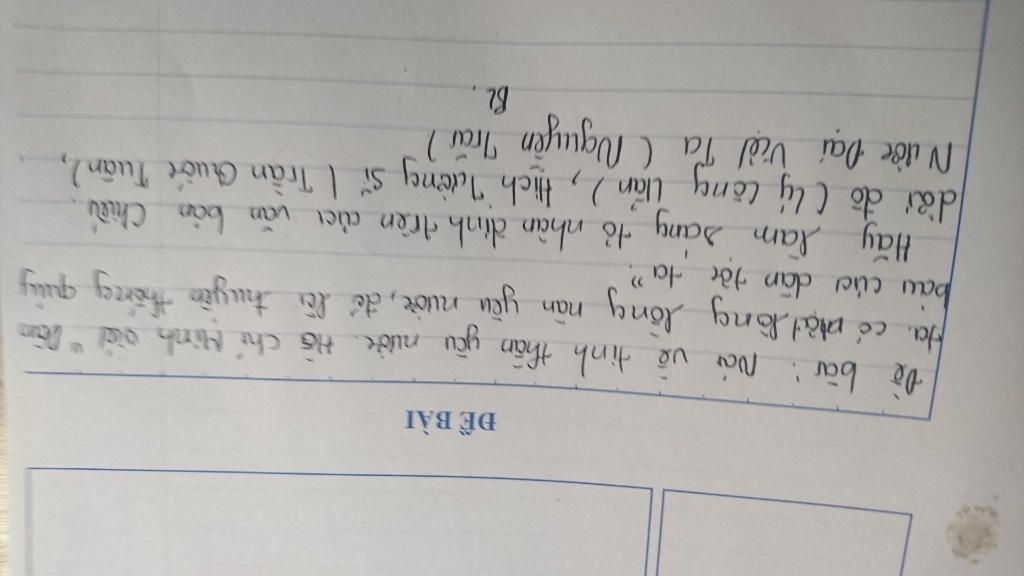 ĐỀ BÀI
Đề bài: Nói về tinh thần yêu nước. Hồ Chí Minh viết "Dân
ta có một lòng nồng nàn yêu nước, đó là truyền thống quý
báu của dân tộc ta".
Hãy làm sáng tỏ nhận định trên của văn bản Chiếu
dời đô (Lý Công Uẩn), Hịch Tướng Sĩ (Trần Quốc Tuấn),
Nước Đại Việt Ta (Nguyễn Trãi)
BL.